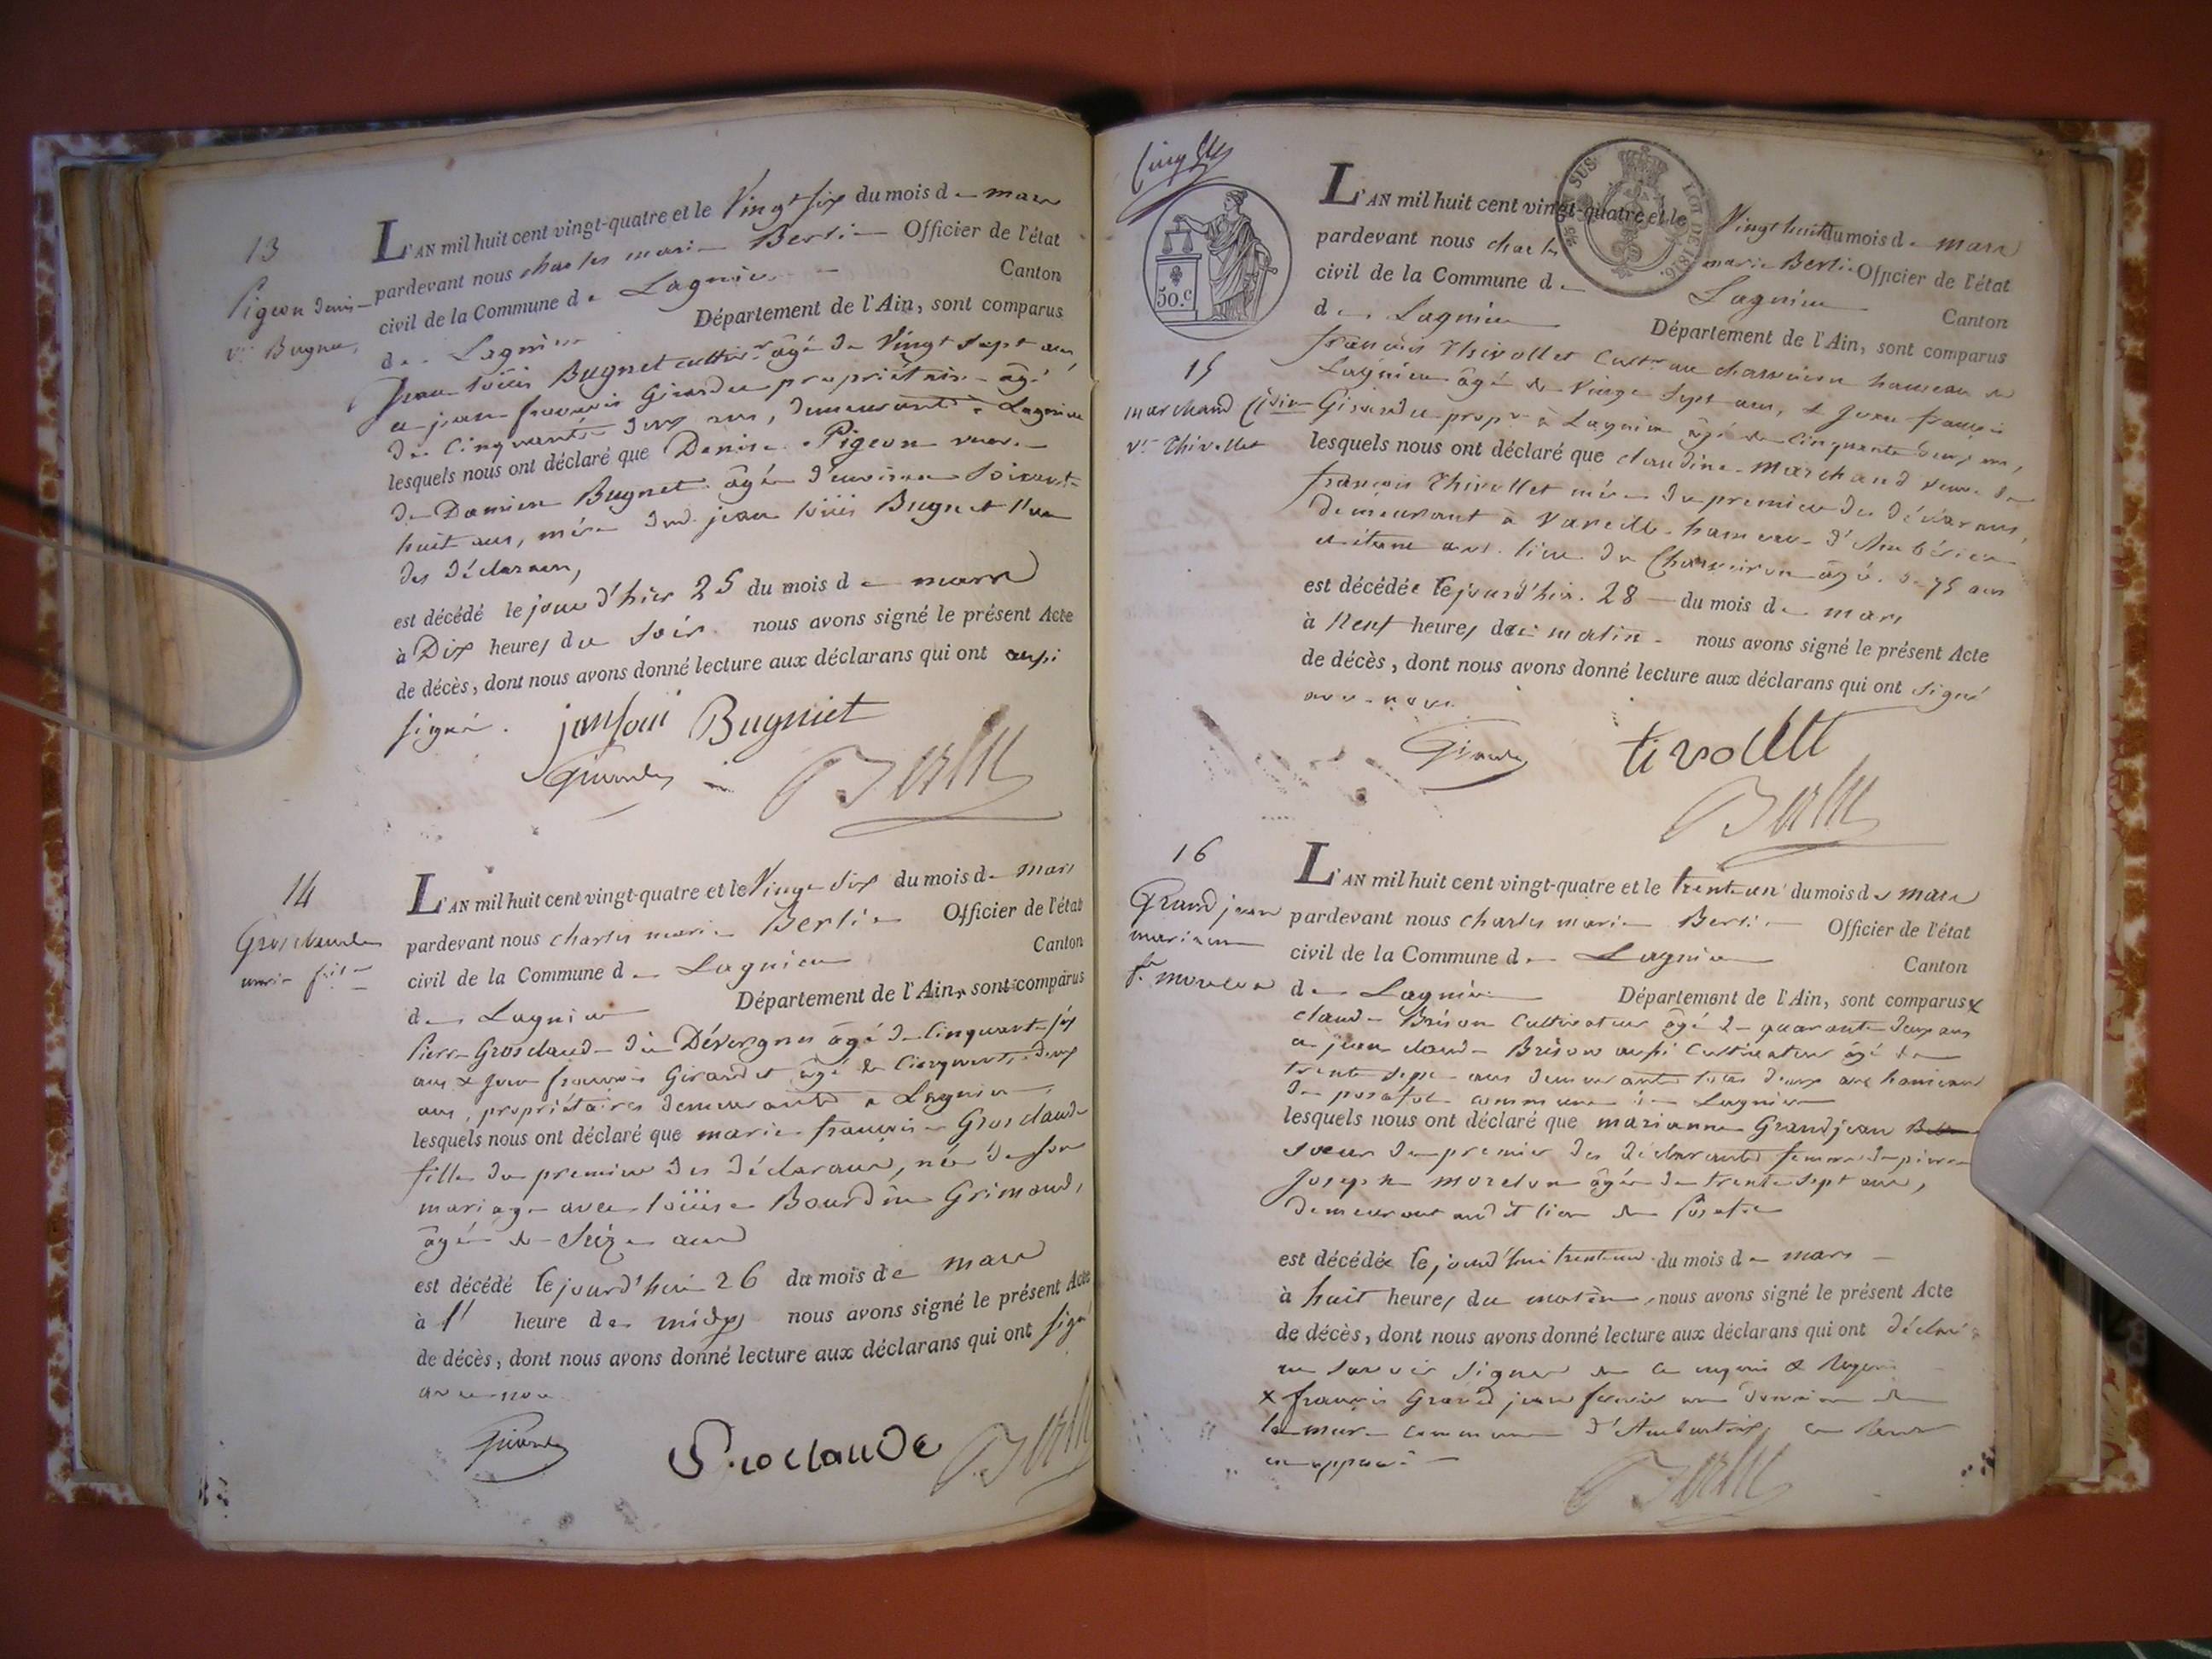 13
Pigeon denise
ve Bugnet
L'AN mil huit cent vingt-quatre et le Vingt six du mois de mars
pardevant nous charles marie Berlie Officier de l'état
civil de la Commune de Lagnieu Canton
de Lagnieu Département de l'Ain, sont comparus
Jean louis Bugnet cultivr âgé de Vingt sept ans
et jean françois Girardet propriétaire âgé
de cinquante deux ans, demeurants à Lagnieu
lesquels nous ont déclaré que Denise Pigeon veuve
de Damien Bugnet âgée d'environ soixante
huit ans, mère dud. jean louis Bugnet l'un
des déclarans,
est décédé le jour d'hier 25 du mois de mars
à Dix heures du soir nous avons signé le présent Acte
de décès, dont nous avons donné lecture aux déclarans qui ont aussi
signé.
janloui Bugniet
Girardet
Berlie
14
Grosclaude
marie fse
L'AN mil huit cent vingt-quatre et le Vingt six du mois de mars
pardevant nous charles marie Berlie Officier de l'état
civil de la Commune de Lagnieu Canton
de Lagnieu Département de l'Ain, sont comparus
Pierre Grosclaude dit Dévergnes âgé de cinquante six
ans & jean françois Girardet âgé de cinquante deux
ans, propriétaires demeurants à Lagnieu,
lesquels nous ont déclaré que marie françoise Grosclaude
fille du premier des déclarans, née de son
mariage avec louise Bourdin Grimaud,
âgée de seize ans
est décédé le jourd'hui 26 du mois de mars
à 1 heure de midy nous avons signé le présent Acte
de décès, dont nous avons donné lecture aux déclarans qui ont signé
avec nous
Girardet
Groclaude
Berlie
Cinq
50.c
SUS. LOI DE 1816.
15
marchand Cdine
ve Thivollet
L'AN mil huit cent vingt-quatre et le Vingt huit du mois de mars
pardevant nous charles marie Berlie Officier de l'état
civil de la Commune de Lagnieu Canton
de Lagnieu Département de l'Ain, sont comparus
françois Thivollet cultr au charveiron hameau de
Lagnieu âgé de vingt sept ans, & jean françois
Girardet propre à Lagnieu âgé de cinquante deux ans,
lesquels nous ont déclaré que claudine Marchand veuve de
françois Thivollet mère du premier des déclarans,
demeurant à Vareille hameau d'Ambérieu
et étant aud. lieu du Charveiron âgée de 75 ans
est décédée le jourd'hui 28 du mois de mars
à Neuf heures du matin nous avons signé le présent Acte
de décès, dont nous avons donné lecture aux déclarans qui ont signé
avec nous
Girardet
tivollet
Berlie
16
Grandjean
marianne
fe morelon
L'AN mil huit cent vingt-quatre et le trente un du mois de mars
pardevant nous charles marie Berlie Officier de l'état
civil de la Commune de Lagnieu Canton
de Lagnieu Département de l'Ain, sont comparus x
claude Brison cultivateur âgé de quarante deux ans
et jean claude Brison aussi cultivateur âgé de
trente sept ans demeurants tous deux au hameau
de posafol commune de Lagnieu
lesquels nous ont déclaré que marianne Grandjean
soeur du premier des déclarants femme de pierre
Joseph morelon âgée de trente sept ans,
demeurant audit lieu de
est décédée le jourd'hui trente un du mois de mars
à huit heures du matin, nous avons signé le présent Acte
de décès, dont nous avons donné lecture aux déclarans qui ont déclaré
ne savoir signer de ce enquis & requis
x françois Grandjean fermier au domaine de
la mure commune d'Ambutrix, ce renvoi
approuvé
Berlie